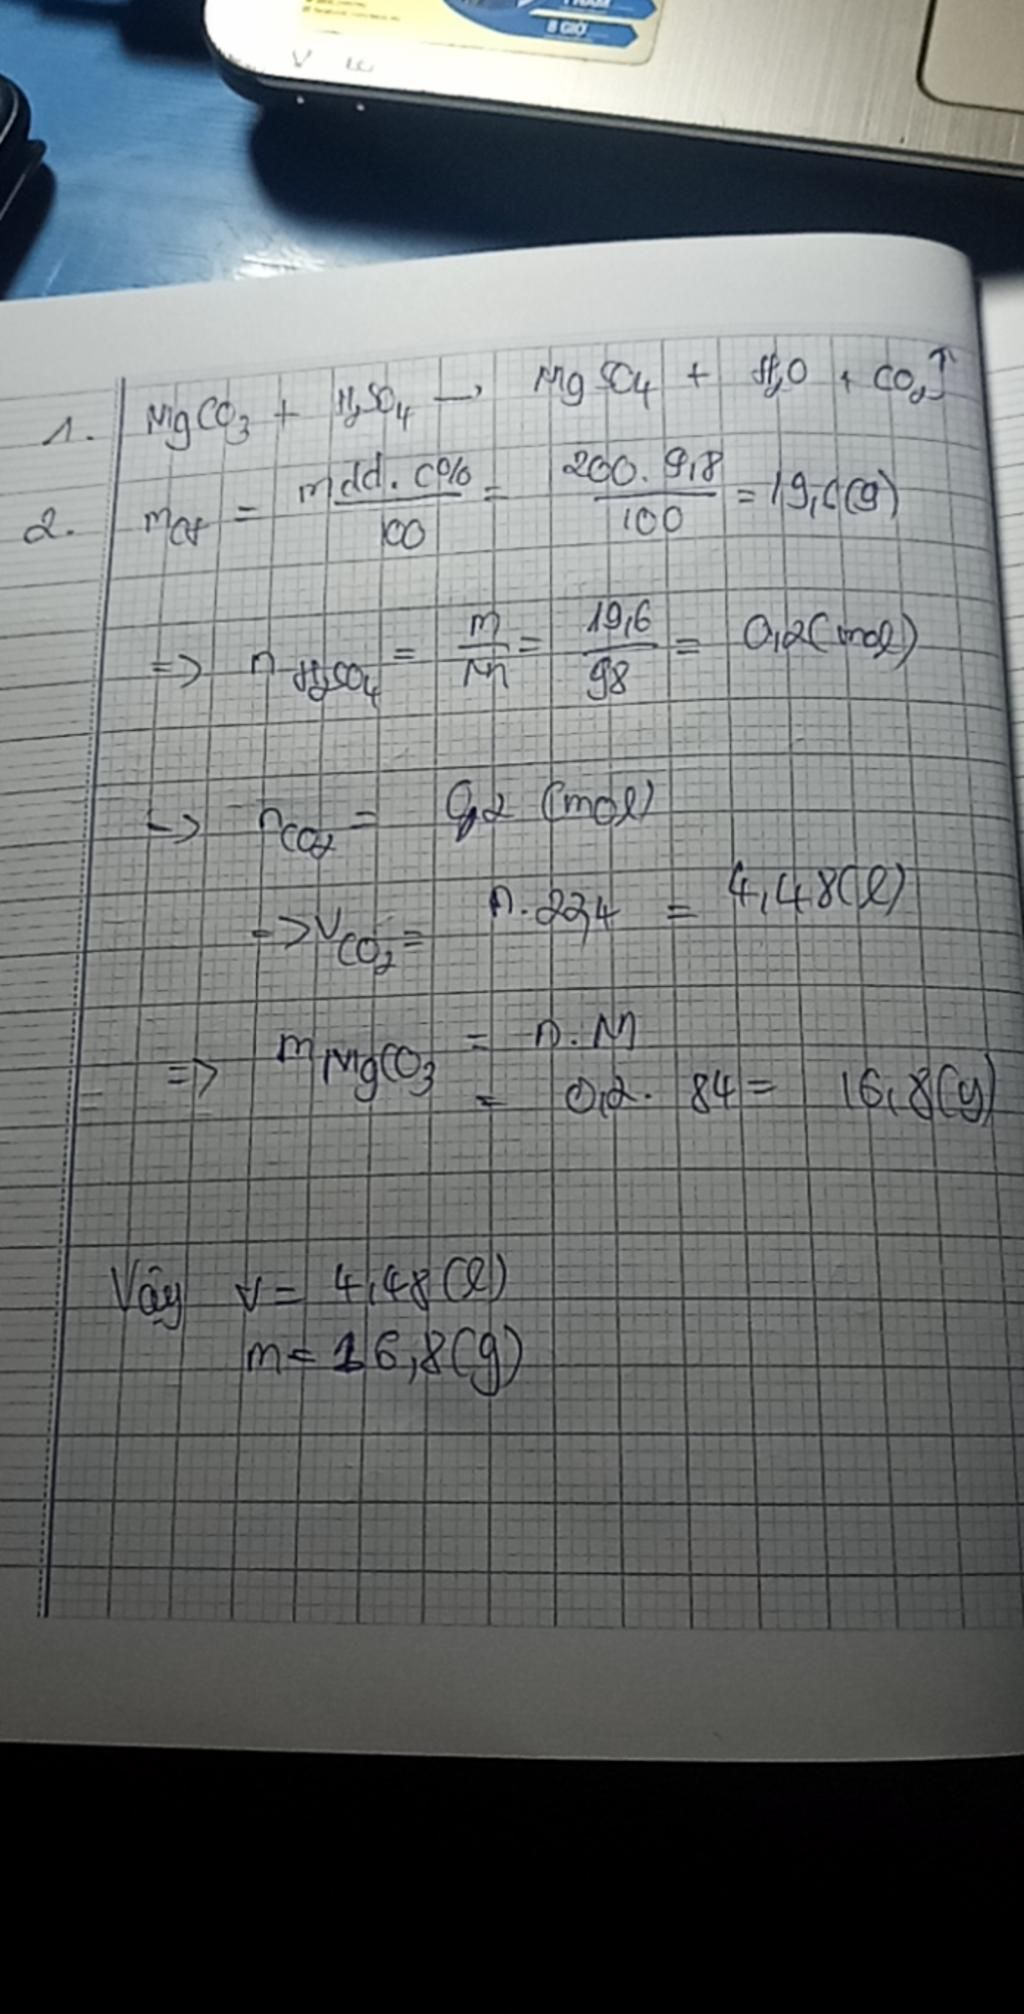 8 GIỜ
1. MgCO3 + H2SO4 → MgSO4 + H2O + CO2↑
2. mct = mdd. C% / 100 = 200. 9,8 / 100 = 19,6(g)
=> nH2SO4 = m / M = 19,6 / 98 = 0,2(mol)
-> nCO2 = 0,2 (mol)
-> VCO2 = n. 22,4 = 4,48(l)
=> mMgCO3 = n. M
= 0,2. 84 = 16,8(g)
Vậy V = 4,48(l)
m = 16,8(g)